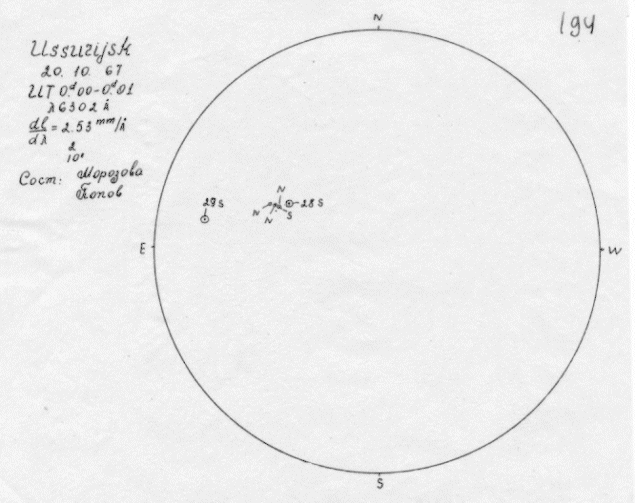 194
Ussurijsk
20. 10. 67
UT 0.d00-0.d01
λ6302 Å
dl/dλ = 2.53 mm/Å
2
10"
Сост: Морозова
Попов
N
29 S
N
28 S
N
N
S
E
W
S